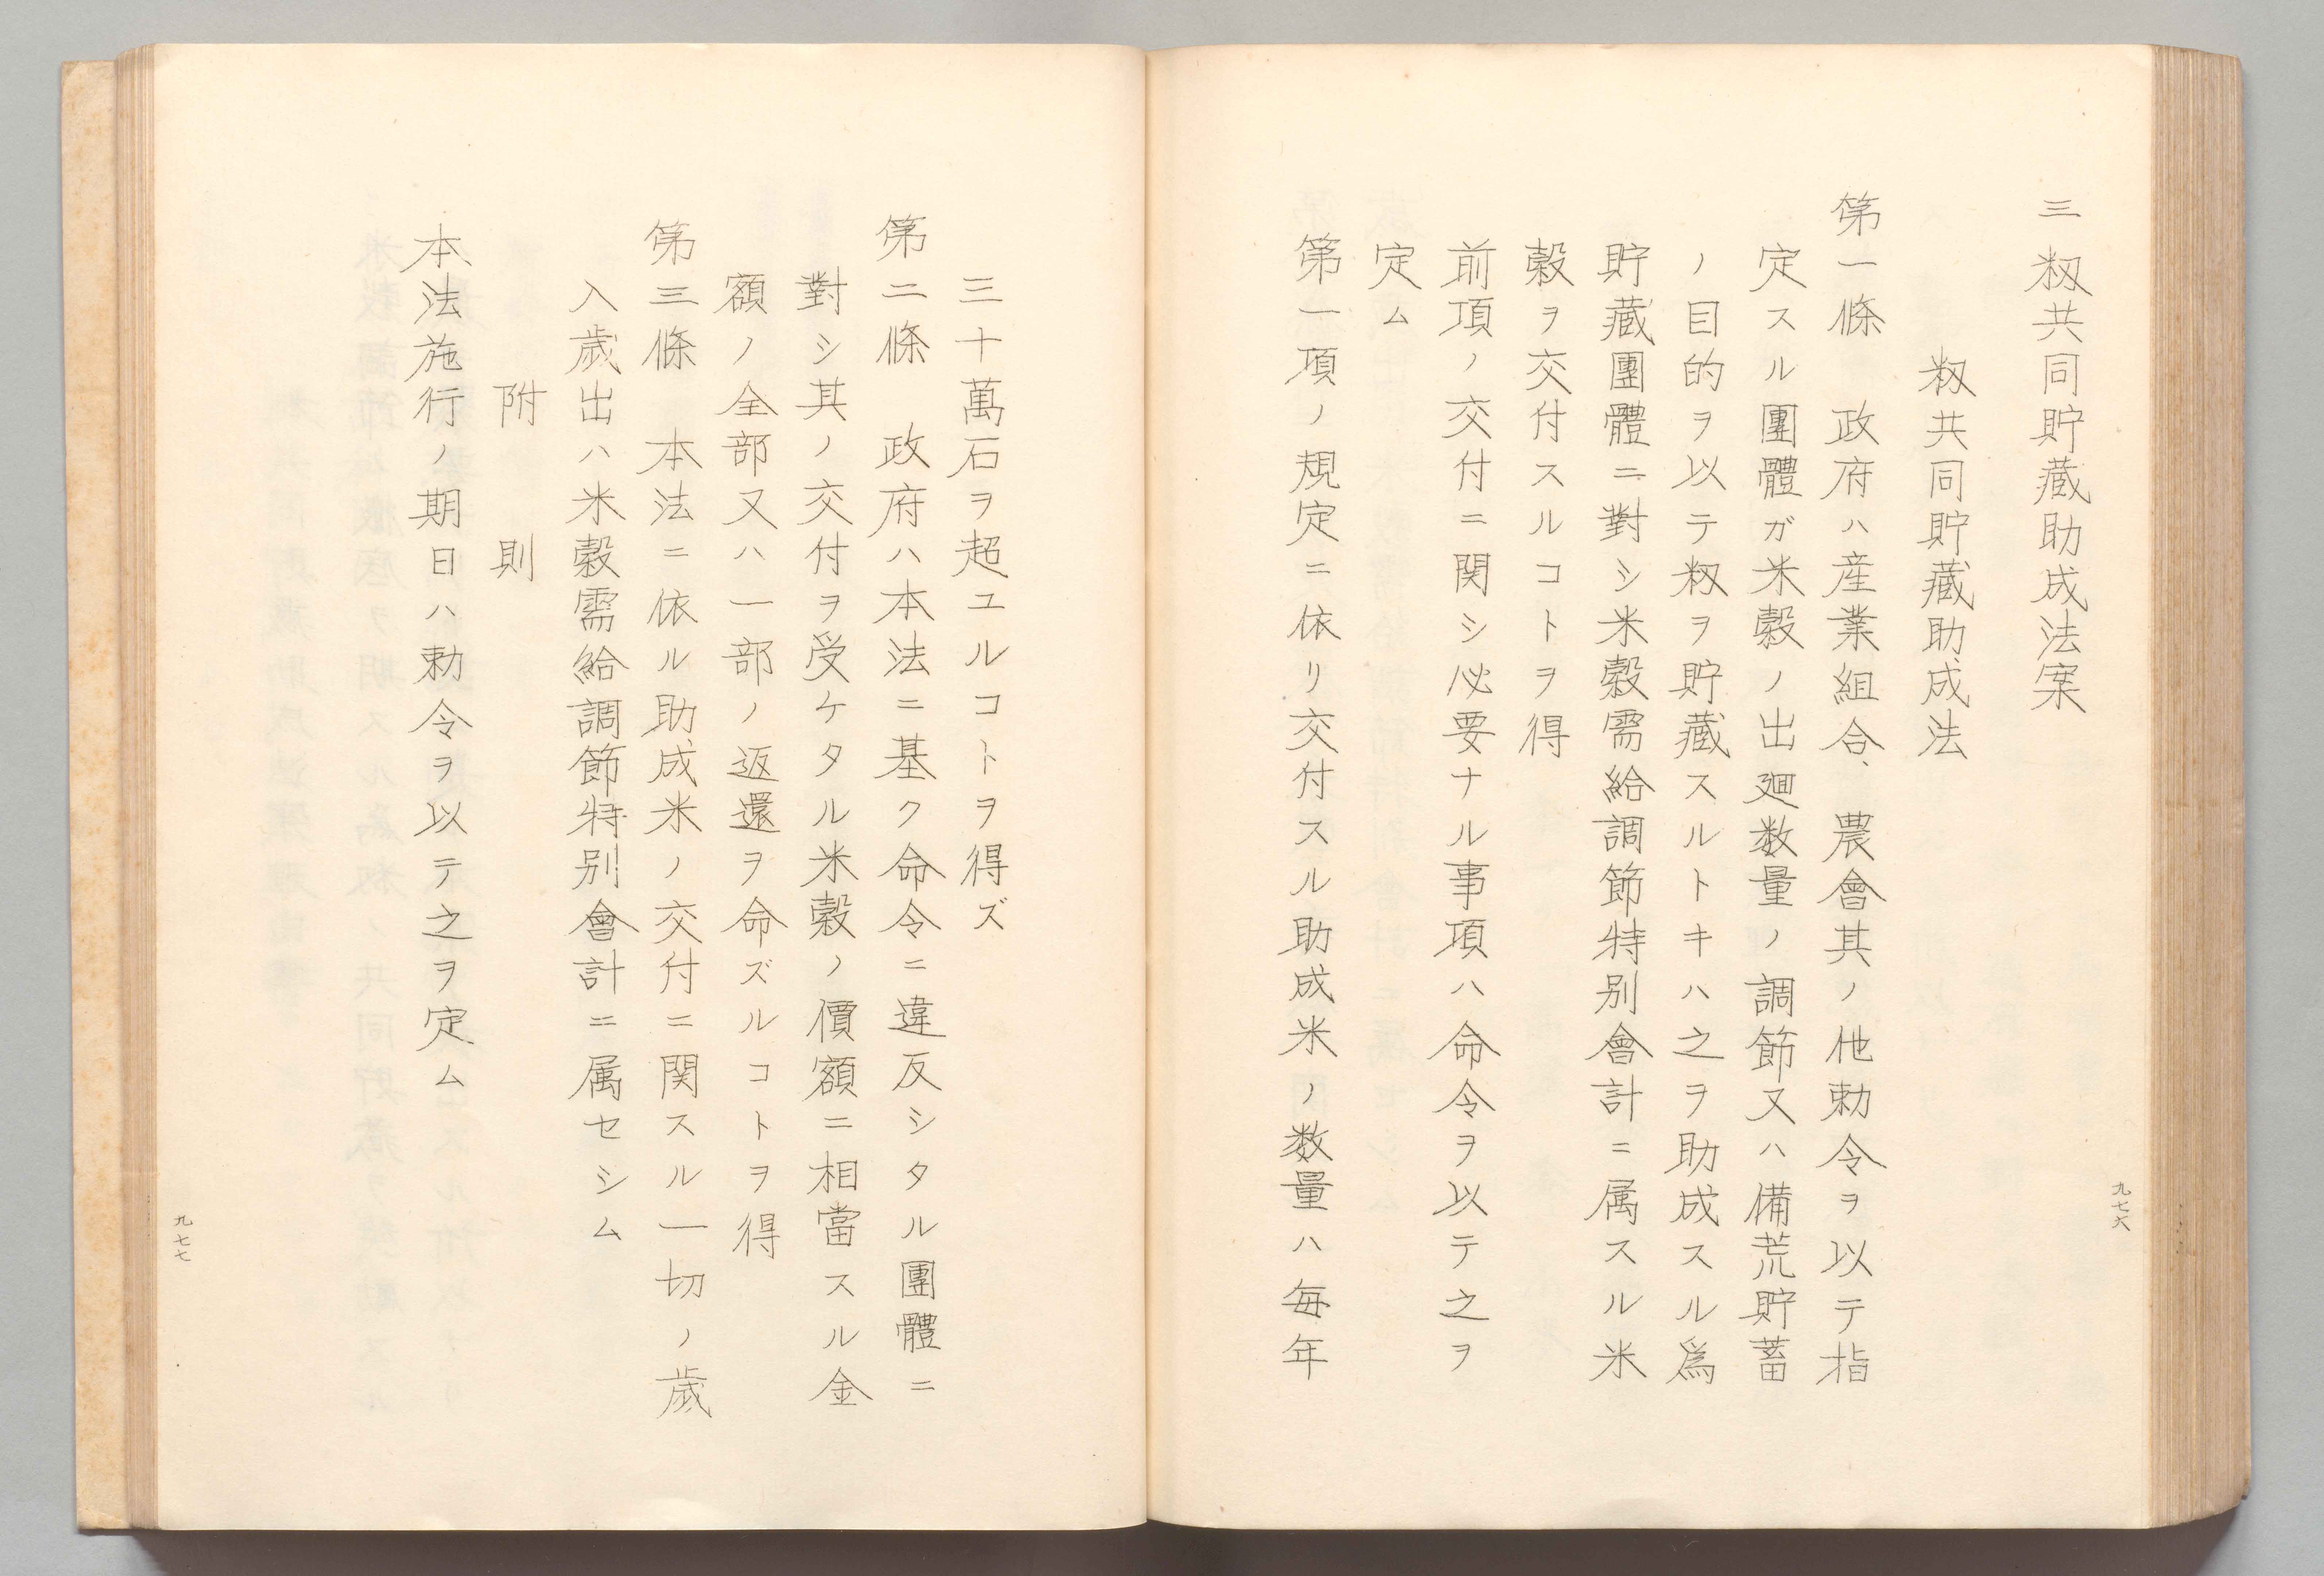 三 籾共同貯蔵助成法案
籾共同貯蔵助成法
第一條 政府ハ産業組合、農會其ノ他勅令ヲ以テ指
定スル團體ガ米穀ノ出廻数量ノ調節又ハ備荒貯蓄
ノ目的ヲ以テ籾ヲ貯蔵スルトキハ之ヲ助成スル爲
貯蔵團體ニ對シ米穀需給調節特別會計ニ属スル米
穀ヲ交付スルコトヲ得
前項ノ交付ニ関シ必要ナル事項ハ命令ヲ以テ之ヲ
定ム
第一項ノ規定ニ依リ交付スル助成米ノ数量ハ毎年
九七六
三十萬石ヲ超ユルコトヲ得ズ
第二條 政府ハ本法ニ基ク命令ニ違反シタル團體ニ
對シ其ノ交付ヲ受ケタル米穀ノ價額ニ相當スル金
額ノ全部又ハ一部ノ返還ヲ命ズルコトヲ得
第三條 本法ニ依ル助成米ノ交付ニ関スル一切ノ歳
入歳出ハ米穀需給調節特別會計ニ属セシム
附則
本法施行ノ期日ハ勅令ヲ以テ之ヲ定ム
九七七